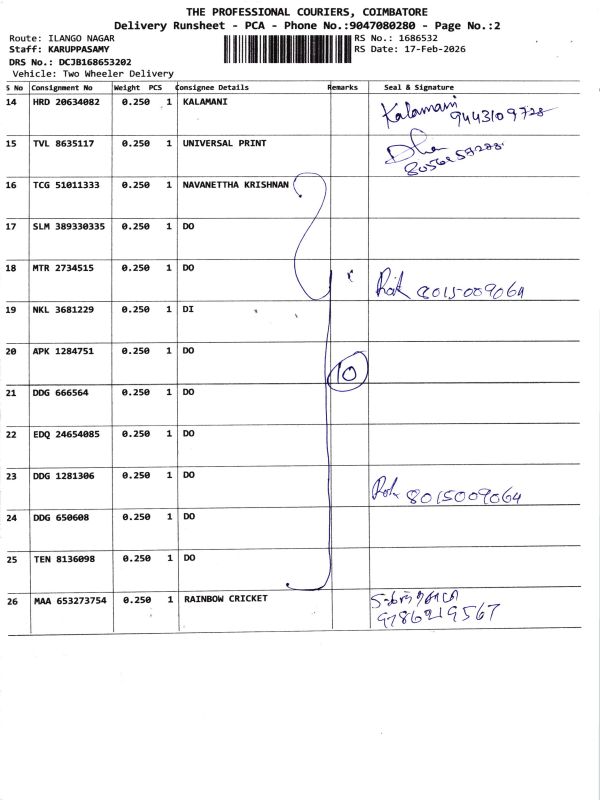 THE PROFESSIONAL COURIERS, COIMBATORE
Delivery Runsheet - PCA - Phone No.:9047080280 - Page No.:2
Route: ILANGO NAGAR RS No.: 1686532
Staff: KARUPPASAMY RS Date: 17-Feb-2026
DRS No.: DCJB168653202
Vehicle: Two Wheeler Delivery
S No Consignment No Weight PCS Consignee Details Remarks Seal & Signature
14 HRD 20634082 0.250 1 KALAMANI Kalamani 9443109728
15 TVL 8635117 0.250 1 UNIVERSAL PRINT
16 TCG 51011333 0.250 1 NAVANETTHA KRISHNAN
17 SLM 389330335 0.250 1 DO
18 MTR 2734515 0.250 1 DO 8015009064
19 NKL 3681229 0.250 1 DI
20 APK 1284751 0.250 1 DO 10
21 DDG 666564 0.250 1 DO
22 EDQ 24654085 0.250 1 DO
23 DDG 1281306 0.250 1 DO 8015009064
24 DDG 650608 0.250 1 DO
25 TEN 8136098 0.250 1 DO
26 MAA 653273754 0.250 1 RAINBOW CRICKET
9786219567